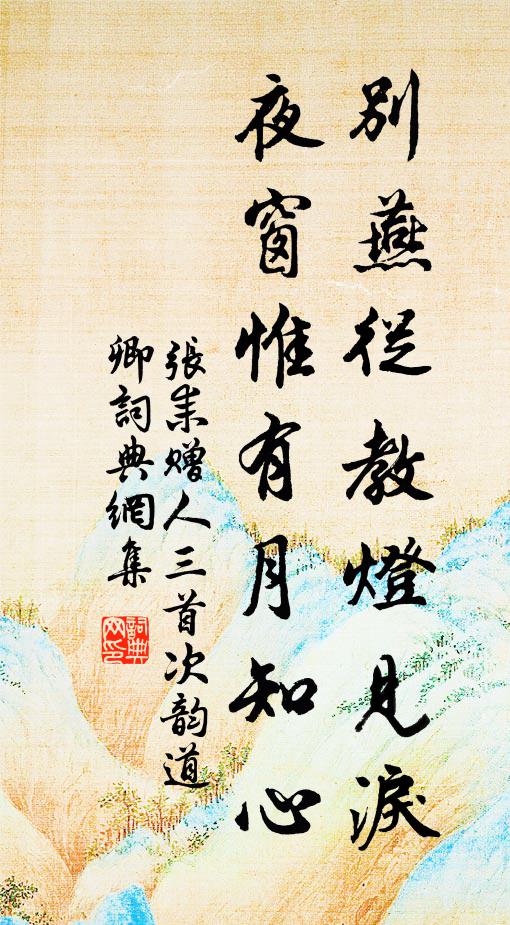 別燕從教燈見淚
夜窗惟有月知心
張耒贈人三首次韵道
卿詞典網集
詞典网印